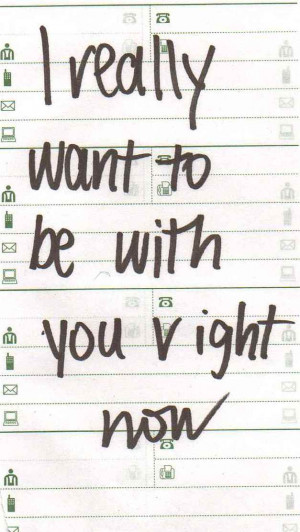 I really
want to
be with
you right
now